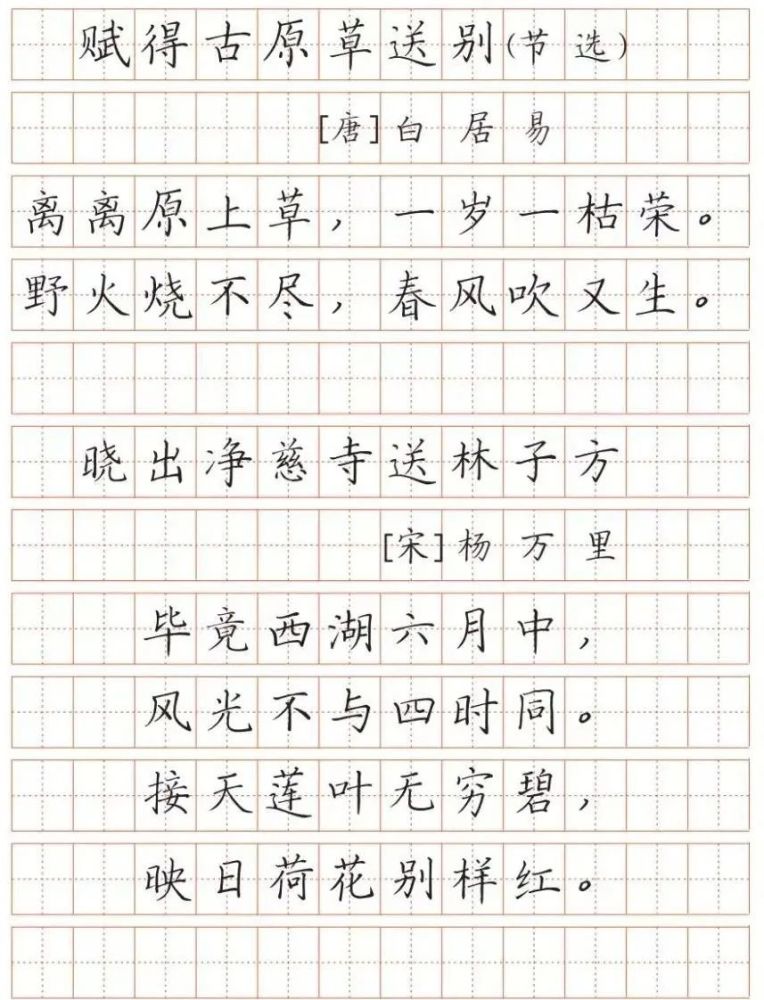 赋得古原草送别(节选)
[唐]白居易
离离原上草,一岁一枯荣。
野火烧不尽,春风吹又生。
晓出净慈寺送林子方
[宋]杨万里
毕竟西湖六月中,
风光不与四时同。
接天莲叶无穷碧,
映日荷花别样红。